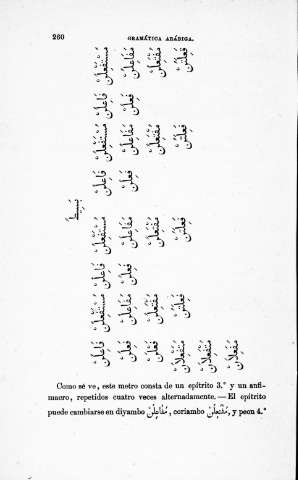 260 GRAMÁTICA ARÁBIGA.
بَسِيطٌ
مُسْتَفْعِلُنْ فَاعِلُنْ مُسْتَفْعِلُنْ فَاعِلُنْ مُسْتَفْعِلُنْ فَاعِلُنْ مُسْتَفْعِلُنْ فَاعِلُنْ
مَفَاعِلُنْ فَعِلُنْ مَفَاعِلُنْ فَعِلُنْ مَفَاعِلُنْ فَعِلُنْ مَفَاعِلُنْ فَعِلُنْ
مُفْتَعِلُنْ مُفْتَعِلُنْ مُفْتَعِلُنْ مُفْتَعِلُنْ فَعْلُنْ
فَعِلَتُنْ فَعِلَتُنْ فَعِلَتُنْ فَعِلَتُنْ
Como sé ve, este metro consta de un epítrito 3.° y un anfi-
macro, repetidos cuatro veces alternadamente. — El epítrito
puede cambiarse en diyambo مَفَاعِلُنْ, coriambo مُفْتَعِلُنْ, y peon 4.°